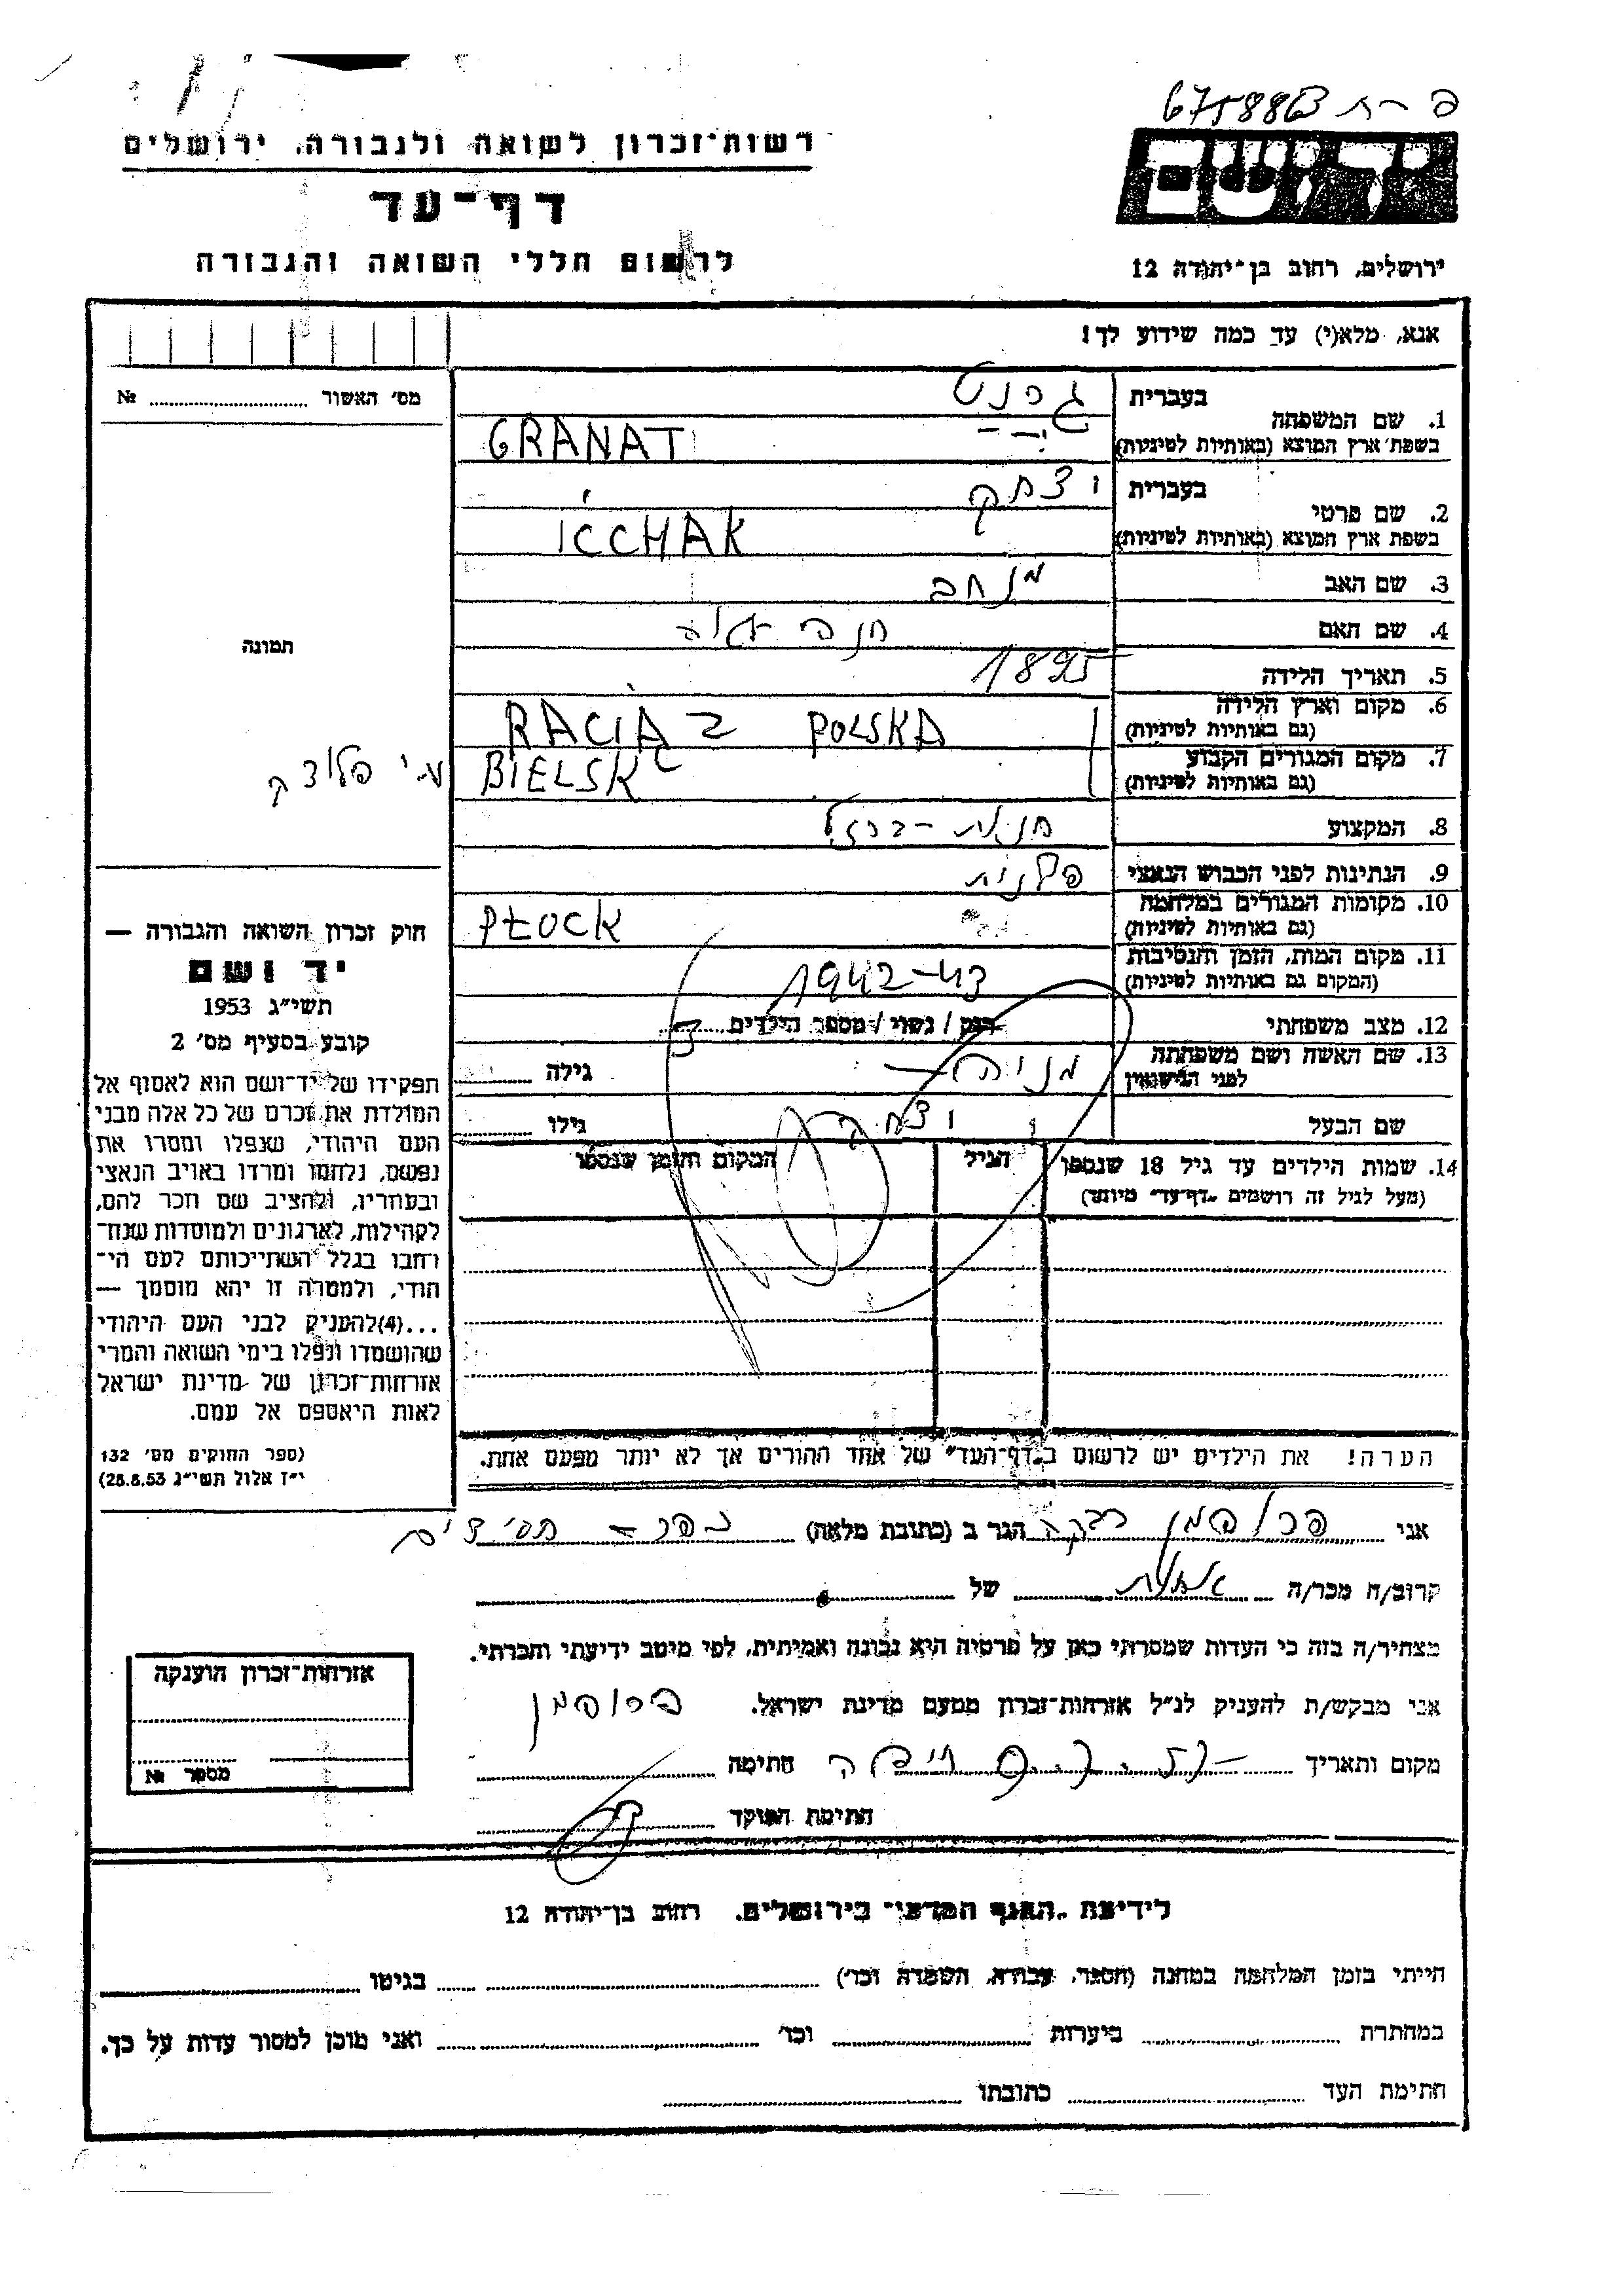 67588 פ-ת
רשות־זכרון לשואה ולגבורה, ירושלים
יד ושם
דף־עד
לרשום חללי השואה והגבורה
ירושלים, רחוב בן־יהודה 12
אנא, מלא(י) עד כמה שידוע לך!
מס׳ האשור № 
1. שם המשפחה
בעברית גרנט
בשפת ארץ המוצא (באותיות לטיניות) GRANAT
2. שם פרטי
בעברית יצחק
בשפת ארץ המוצא (באותיות לטיניות) ICCHAK
3. שם האב מנחם
4. שם האם חנה
תמונה
5. תאריך הלידה 1895
6. מקום וארץ הלידה (גם באותיות לטיניות) RACIAZ POLSKA
7. מקום המגורים הקבוע (גם באותיות לטיניות) BIELSK ע״י פלוצק
8. המקצוע חנות-ברזל
9. הנתינות לפני הכבוש הנאצי פולנית
10. מקומות המגורים במלחמה (גם באותיות לטיניות) PŁOCK
11. מקום המות, הזמן והנסיבות (המקום גם באותיות לטיניות) 1942-43
12. מצב משפחתי רוק / נשוי / מספר הילדים 3
13. שם האשה ושם משפחתה לפני הנישואין
גילה
שם הבעל יצחק גילו
14. שמות הילדים עד גיל 18 שנספו
(מעל לגיל זה רושמים „דף־עד״ מיוחד)
הגיל
המקום והזמן שנספו
חוק זכרון השואה והגבורה —
יד ושם
תשי״ג 1953
קובע בסעיף מס׳ 2
תפקידו של יד־ושם הוא לאסוף אל
המולדת את זכרם של כל אלה מבני
העם היהודי, שנפלו ומסרו את
נפשם, נלחמו ומרדו באויב הנאצי
ובעוזריו, ולהציב שם וזכר להם,
לקהילות, לארגונים ולמוסדות שנח־
רחבו בגלל השתייכותם לעם הי־
הודי, ולמטרה זו יהא מוסמך —
...(4)להעניק לבני העם היהודי
שהושמדו ונפלו בימי השואה והמרי
אזרחות־זכרון של מדינת ישראל
לאות היאספם אל עמם.
(ספר החוקים מס׳ 132
י״ז אלול תשי״ג 28.8.53)
הערה! את הילדים יש לרשום ב„דף־העד״ של אחד ההורים אך לא יותר מפעם אחת.
אני רבקה הגר ב (כתובת מלאה) כפר חסידים
קרוב/ה מכר/ה אחות של
מצהיר/ה בזה כי העדות שמסרתי כאן על פרטיה היא נכונה ואמיתית, לפי מיטב ידיעתי והכרתי.
אני מבקש/ת להעניק לנ״ל אזרחות־זכרון מטעם מדינת ישראל.
מקום ותאריך חתימה
חתימת הפוקד
אזרחות־זכרון הוענקה
מספר №
לידיעת „האגף המדעי״ בירושלים, רחוב בן־יהודה 12
הייתי בזמן המלחמה במחנה (הסגר, עבודה, השמדה וכו׳) בגיטו
במחתרת ביערות וכו׳ ואני מוכן למסור עדות על כך.
חתימת העד כתובתו